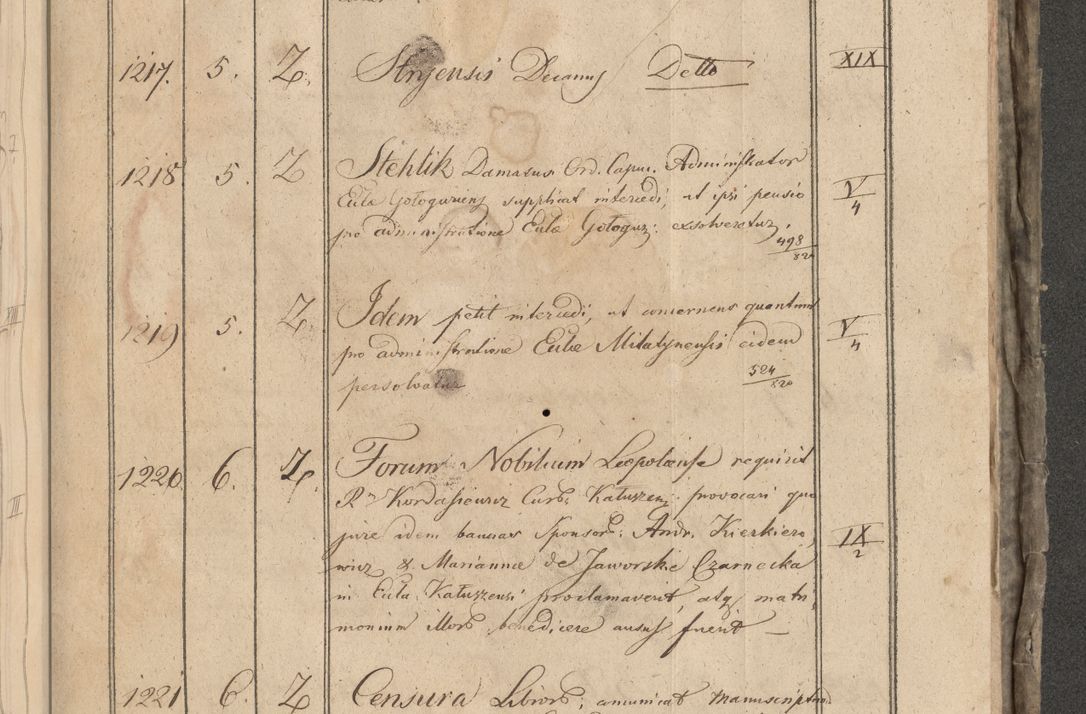 1217. 5. Z. Stryensis Decanus Detto XIX
1218 5. Z Stehlik Damasus Ord. Capuc. Administrator
Eccla Gołoguriens supplicat intercedi, ut ipsi pensio V/4
pro administratione Ecclæ Gołogur: exsolveretur.
498/820
1219 5. Z. Idem petit intercedi, ut concernens quantum
pro administratione Ecclæ Milatynensis eidem V/4
persolvatur 524/820
1220 6. Z. Forum Nobilium Leopoliense requirit
Rm Kordasiewicz Curb: Kałuszens: provocari quo
jure idem bannas Sponsor: Andr. Kierkiero IX/2
wicz & Mariannæ de Jaworskie Czarnecka
in Eccla Kałuszensi proclamaverit, atq matri,
monium illor benedicere ausus fuerit –
1221 6. Z Censura Libror; comunicat Manuscriptum